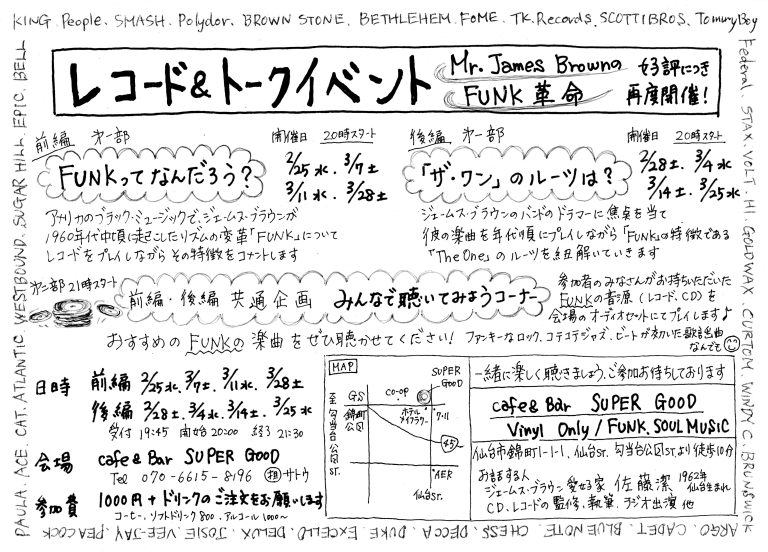 KING. People. SMASH. Polydor. BROWN STONE. BETHLEHEM. FAME. TK.Records. SCOTTI BROS. Tommy Boy
Federal. STAX. VOLT. HI. GOLDWAX. CURTOM. WINDY C. BRUNSWICK
レコード&トークイベント
Mr. James Brownの
FUNK 革命
好評につき
再度開催!
前編 第一部
開催日 20時スタート
2/25水. 3/7土
3/11水. 3/28土
FUNKってなんだろう?
アメリカのブラック・ミュージックで、ジェームス・ブラウンが
1960年代中頃に起こしたリズムの変革「FUNK」について
レコードをプレイしながらその特徴をコメントします
後編 第一部
開催日 20時スタート
2/28土. 3/4水
3/14土. 3/25水
「ザ・ワン」のルーツは?
ジェームス・ブラウンのバンドのドラマーに焦点を当て
彼の楽曲を年代順にプレイしながら「FUNK」の特徴である
「The One」のルーツを紐解いていきます
第二部 21時スタート
前編・後編 共通企画 みんなで聴いてみようコーナー
参加者のみなさんがお持ちいただいた
FUNKの音源(レコード、CD)を
会場のオーディオセットにてプレイします♪
おすすめのFUNKの楽曲をぜひ聴かせてください!
ファンキーなロック、コテコテジャズ、ビートが効いた歌謡曲
なんでも
日時 前編 2/25水. 3/7土. 3/11水. 3/28土
後編 2/28土. 3/4水. 3/14土. 3/25水
受付 19:45 開始 20:00 終了 21:30
会場 cafe & Bar SUPER GOOD
Tel 070-6615-8196 担サトウ
参加費 1000円+ドリンクのご注文をお願いします
コーヒー、ソフトドリンク 800. アルコール 1000~
MAP
SUPER
GOOD
至勾当台公園St.
GS
co-op
錦町
公園
ホテル
メイフラワー
7-11
45
AER
仙台St.
一緒に楽しく聴きましょう、ご参加お待ちしております
cafe & Bar SUPER GOOD
Vinyl Only / FUNK. SOUL MUSIC
仙台市錦町1-1-1. 仙台St. 勾当台公園St.より徒歩10分
お話する人
ジェームス・ブラウン愛好家 佐藤潔 1962年
仙台生まれ
CD、レコードの監修、執筆、ラジオ出演 他
PAULA. ACE. CAT. ATLANTIC. WESTBOUND. SUGAR HILL. EPIC. BELL
ARGO. CADET. BLUE NOTE. CHESS. DECCA. DUKE. EXCELLO. DELUX. JOSIE. VEE-JAY. PEACOCK